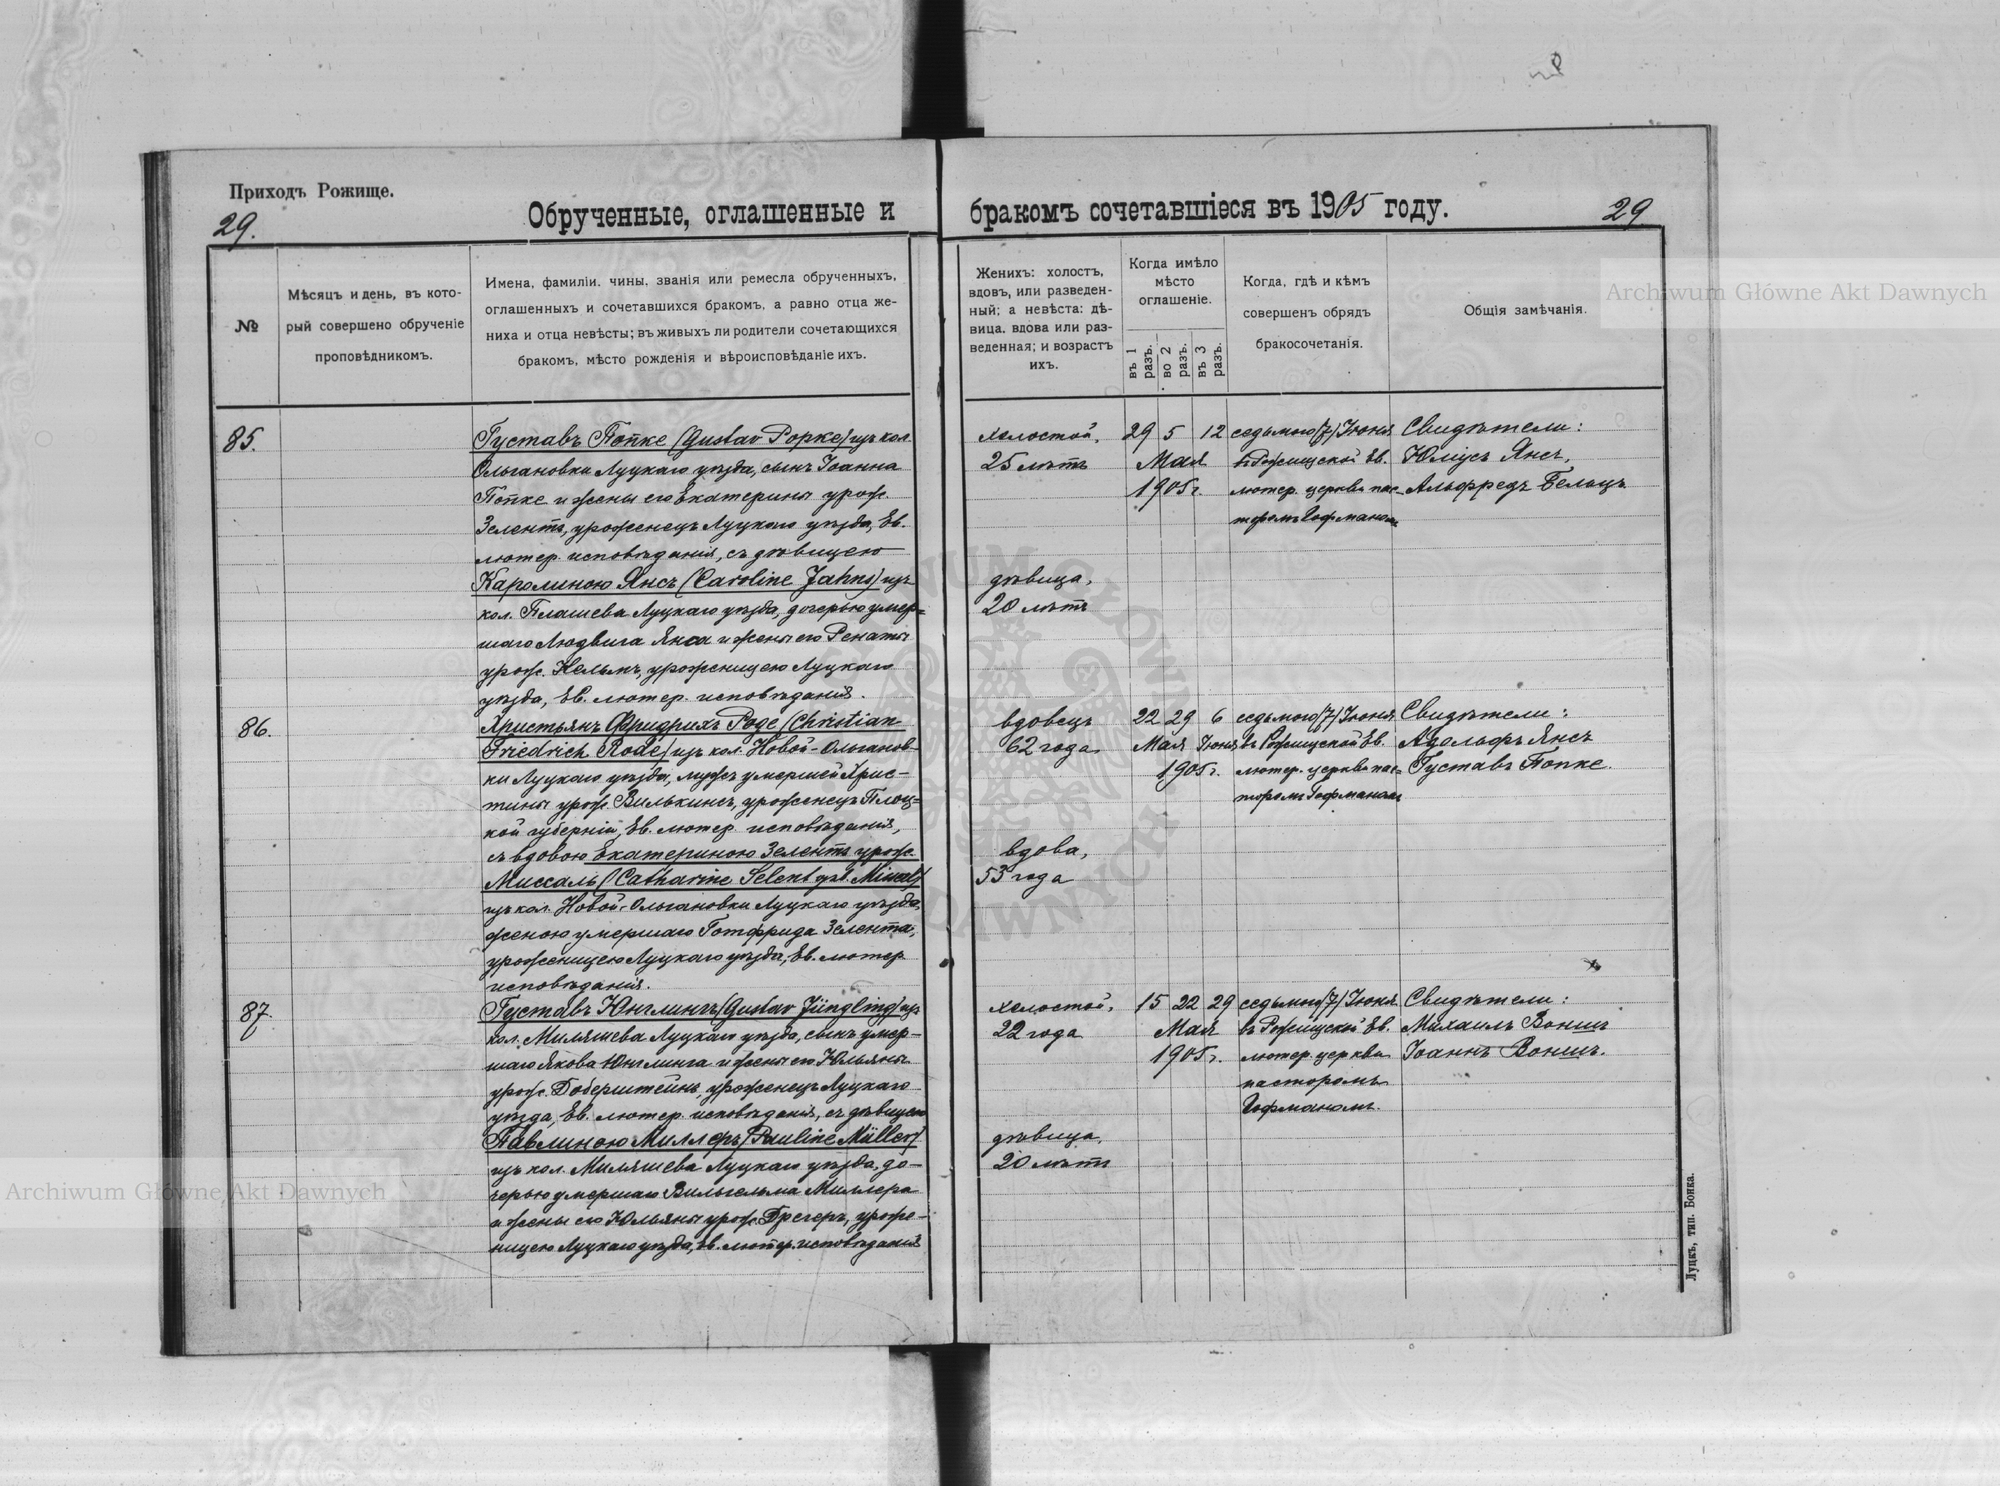 Приходъ Рожище.
29.
Обрученные, оглашенные и
бракомъ сочетавшіеся въ 1905 году.
29
№
Мѣсяцъ и день, въ кото-
рый совершено обрученіе
проповѣдникомъ.
Имена, фамиліи, чины, званія или ремесла обрученныхъ,
оглашенныхъ и сочетавшихся бракомъ, а равно отца же-
ниха и отца невѣсты; въ живыхъ ли родители сочетающихся
бракомъ, мѣсто рожденія и вѣроисповѣданіе ихъ.
Женихъ: холостъ,
вдовъ, или разведен-
ный; а невѣста: дѣ-
вица, вдова или раз-
веденная; и возрастъ
ихъ.
Когда имѣло
мѣсто
оглашеніе.
въ 1 разъ.
во 2 разъ.
въ 3 разъ.
Когда, гдѣ и кѣмъ
совершенъ обрядъ
бракосочетанія.
Общія замѣчанія.
85.
Густавъ Попке (Gustav Popke) изъ кол.
Ольгановки Луцкаго уѣзда, сынъ Іоанна
Попке и жены его Екатерины урож.
Зелентъ, уроженецъ Луцкаго уѣзда, Ев.
лютер. исповѣданія, съ дѣвицею
Каролиною Янсъ (Caroline Jahns) изъ
кол. Плашева Луцкаго уѣзда, дочерью умер=
шаго Людвига Янса и жены его Ренаты
урож. Кельмъ, уроженицею Луцкаго
уѣзда, Ев. лютер. исповѣданія.
холостой,
25 лѣтъ
дѣвица,
20 лѣтъ
29 5 12
Мая
1905 г.
седьмого (7) Іюня
въ Рожищской Ев.
лютер. церкви пас-
торомъ Гофманомъ
Свидѣтели:
Юліусъ Янсъ,
Альфредъ Бельцъ
86.
Христьянъ Фридрихъ Роде (Christian
Friedrich Rode) изъ кол. Новой-Ольганов-
ки Луцкаго уѣзда, мужъ умершей Хрис-
тины урож. Вилькинсъ, уроженецъ Плоц=
кой губерніи, Ев. лютер. исповѣданія,
съ вдовою Екатериною Зелентъ урож.
Миссаль (Catharine Selent geb. Missal)
изъ кол. Новой-Ольгановки Луцкаго уѣзда,
женою умершаго Готфрида Зелента,
уроженицею Луцкаго уѣзда, Ев. лютер.
исповѣданія.
вдовецъ
62 года
вдова,
53 года
22 29 6
Мая Іюня
1905 г.
седьмого (7) Іюня
въ Рожищской Ев.
лютер. церкви пас=
торомъ Гофманомъ
Свидѣтели:
Адольфъ Янсъ
Густавъ Попке.
87.
Густавъ Юнглингъ (Gustav Jüngling) изъ
кол. Миляшева Луцкаго уѣзда, сынъ умер-
шаго Якова Юнглинга и жены его Юльяны
урож. Боберштейнъ, уроженецъ Луцкаго
уѣзда, Ев. лютер. исповѣданія, съ дѣвицею
Павлиною Миллеръ (Pauline Müller)
изъ кол. Миляшева Луцкаго уѣзда, до-
черью умершаго Вильгельма Миллера
и жены его Юльяны урож. Брегеръ, уроже-
ницею Луцкаго уѣзда, Ев. лютер. исповѣданія
холостой,
22 года
дѣвица,
20 лѣтъ
15 22 29
Мая
1905 г.
седьмого (7) Іюня
въ Рожищской Ев.
лютер. церкви
пасторомъ
Гофманомъ.
Свидѣтели:
Михаилъ Воншъ
Іоаннъ Воншъ.
Луцкъ, тип. Бонка.
Archiwum Główne Akt Dawnych
Archiwum Główne Akt Dawnych